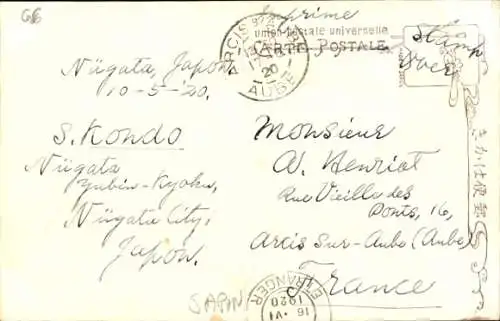 G6
Imprime
union postale universelle
CARTE POSTALE
Stamp
Over
ARCIS S/ AUBE
20
AUBE
Niigata, Japon
10-5-20.
S. Kondo
Niigata
Yubin-Kyoku,
Niigata City,
Japon.
Monsieur
A. Henriot
Rue Vieille des
Ponts, 16,
Arcis Sur-Aube (Aube)
France
きか は 便郵
ETRANGER
16 VI
1920
SAPIN